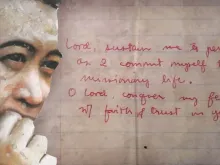 Lord, sustain me to per
as I commit myself to
missionary life.
O Lord, conquer my fe
w/ faith & trust in yo